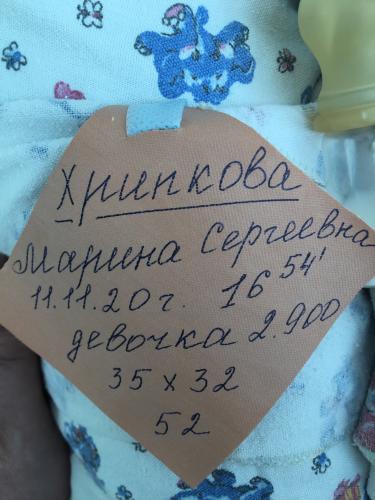 Хрипкова
Марина Сергеевна
11.11.20г. 16 54'
девочка 2.900
35 х 32
52